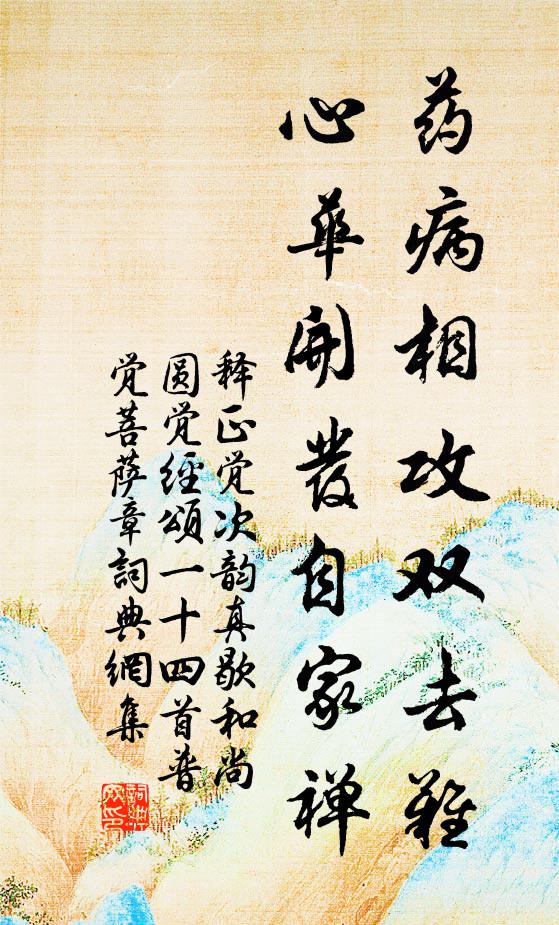 药病相攻双去难
心华开發自家禅
释正觉次韵真歇和尚
圆觉经颂一十四首普
觉菩萨章詞典網集